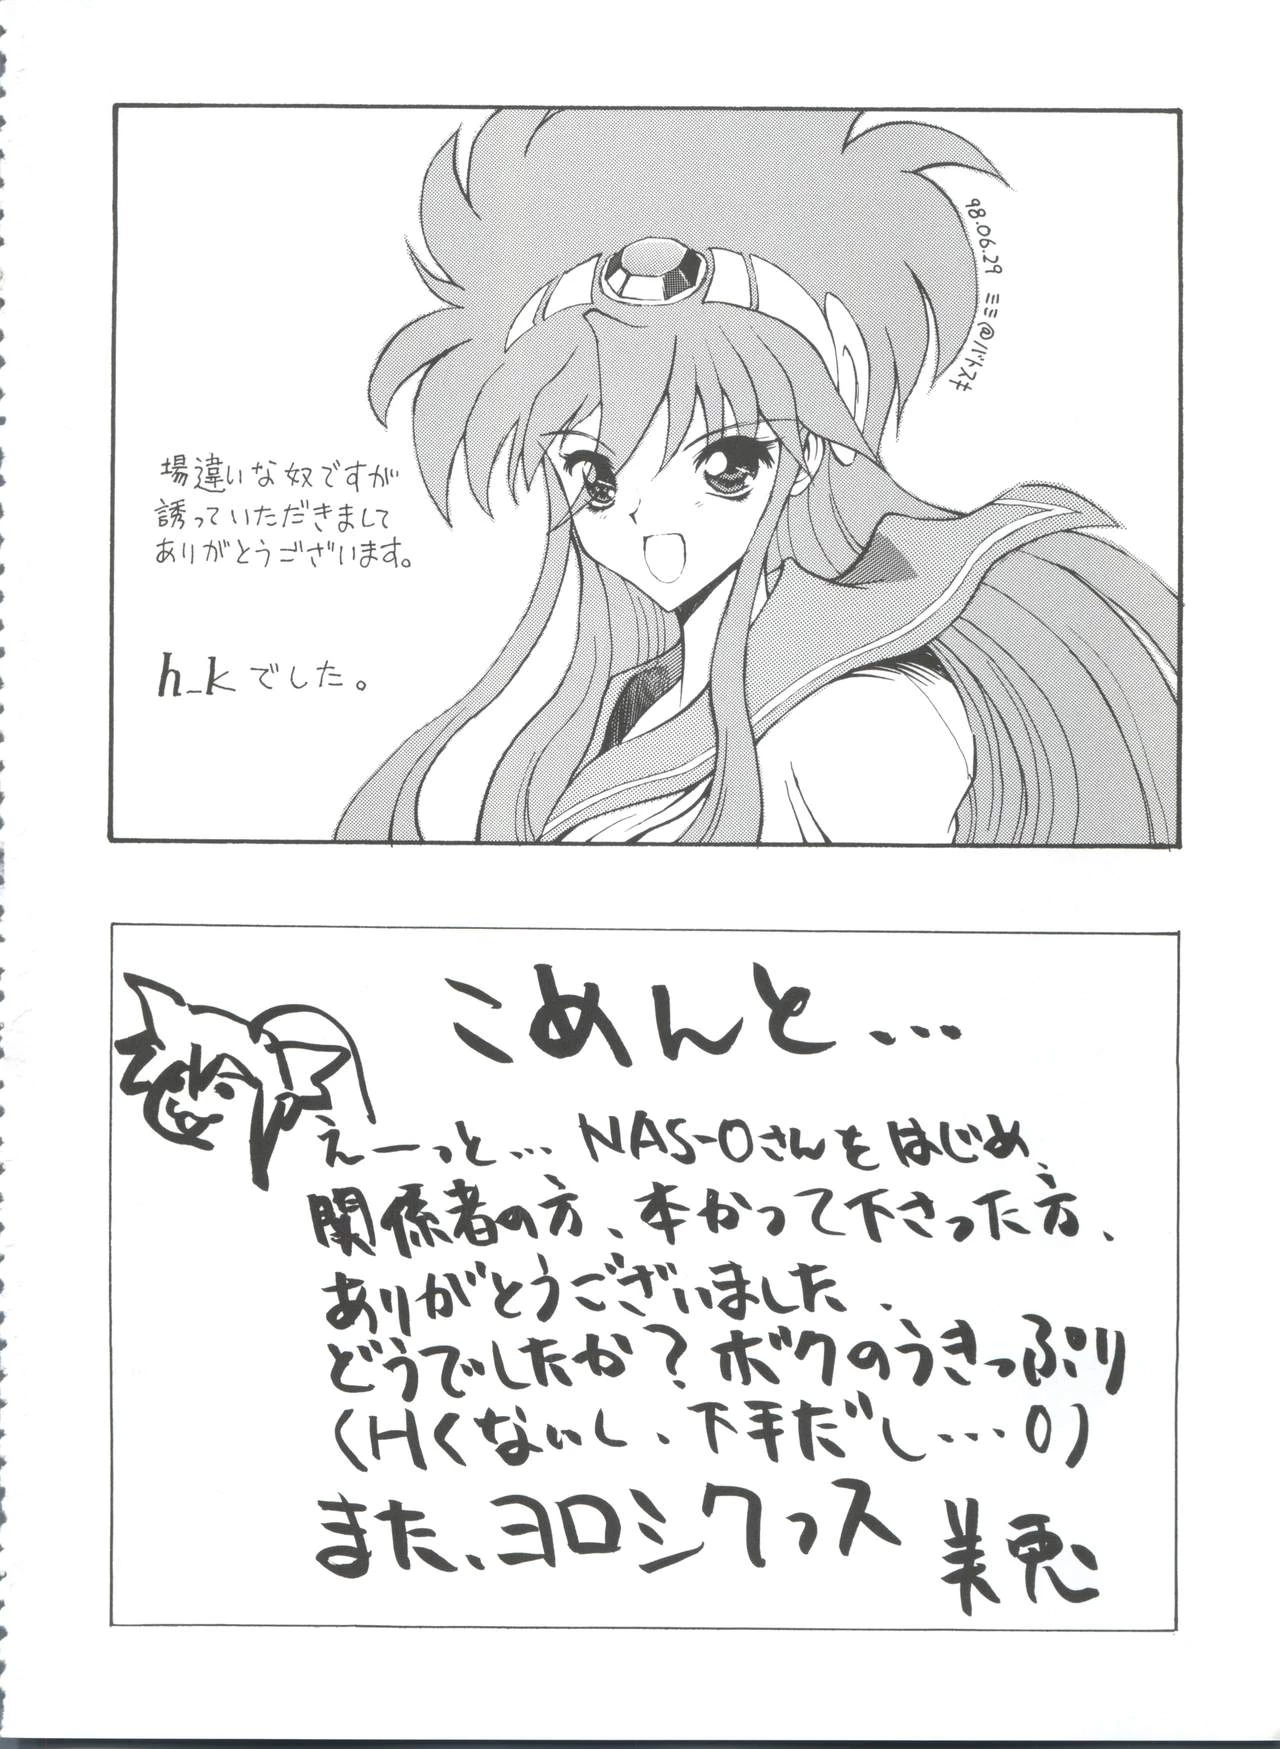 98.06.29 ミミ@バトスキ
場違いな奴ですが
誘っていただきまして
ありがとうございます。
h_kでした。
こめんと…
えーっと… NAS-Oさんをはじめ、
関係者の方、本かって下さった方、
ありがとうございました、
どうでしたか？ボクのうきっぷり
（Hくないし、下手だし…O）
また、ヨロシクっス
美兎